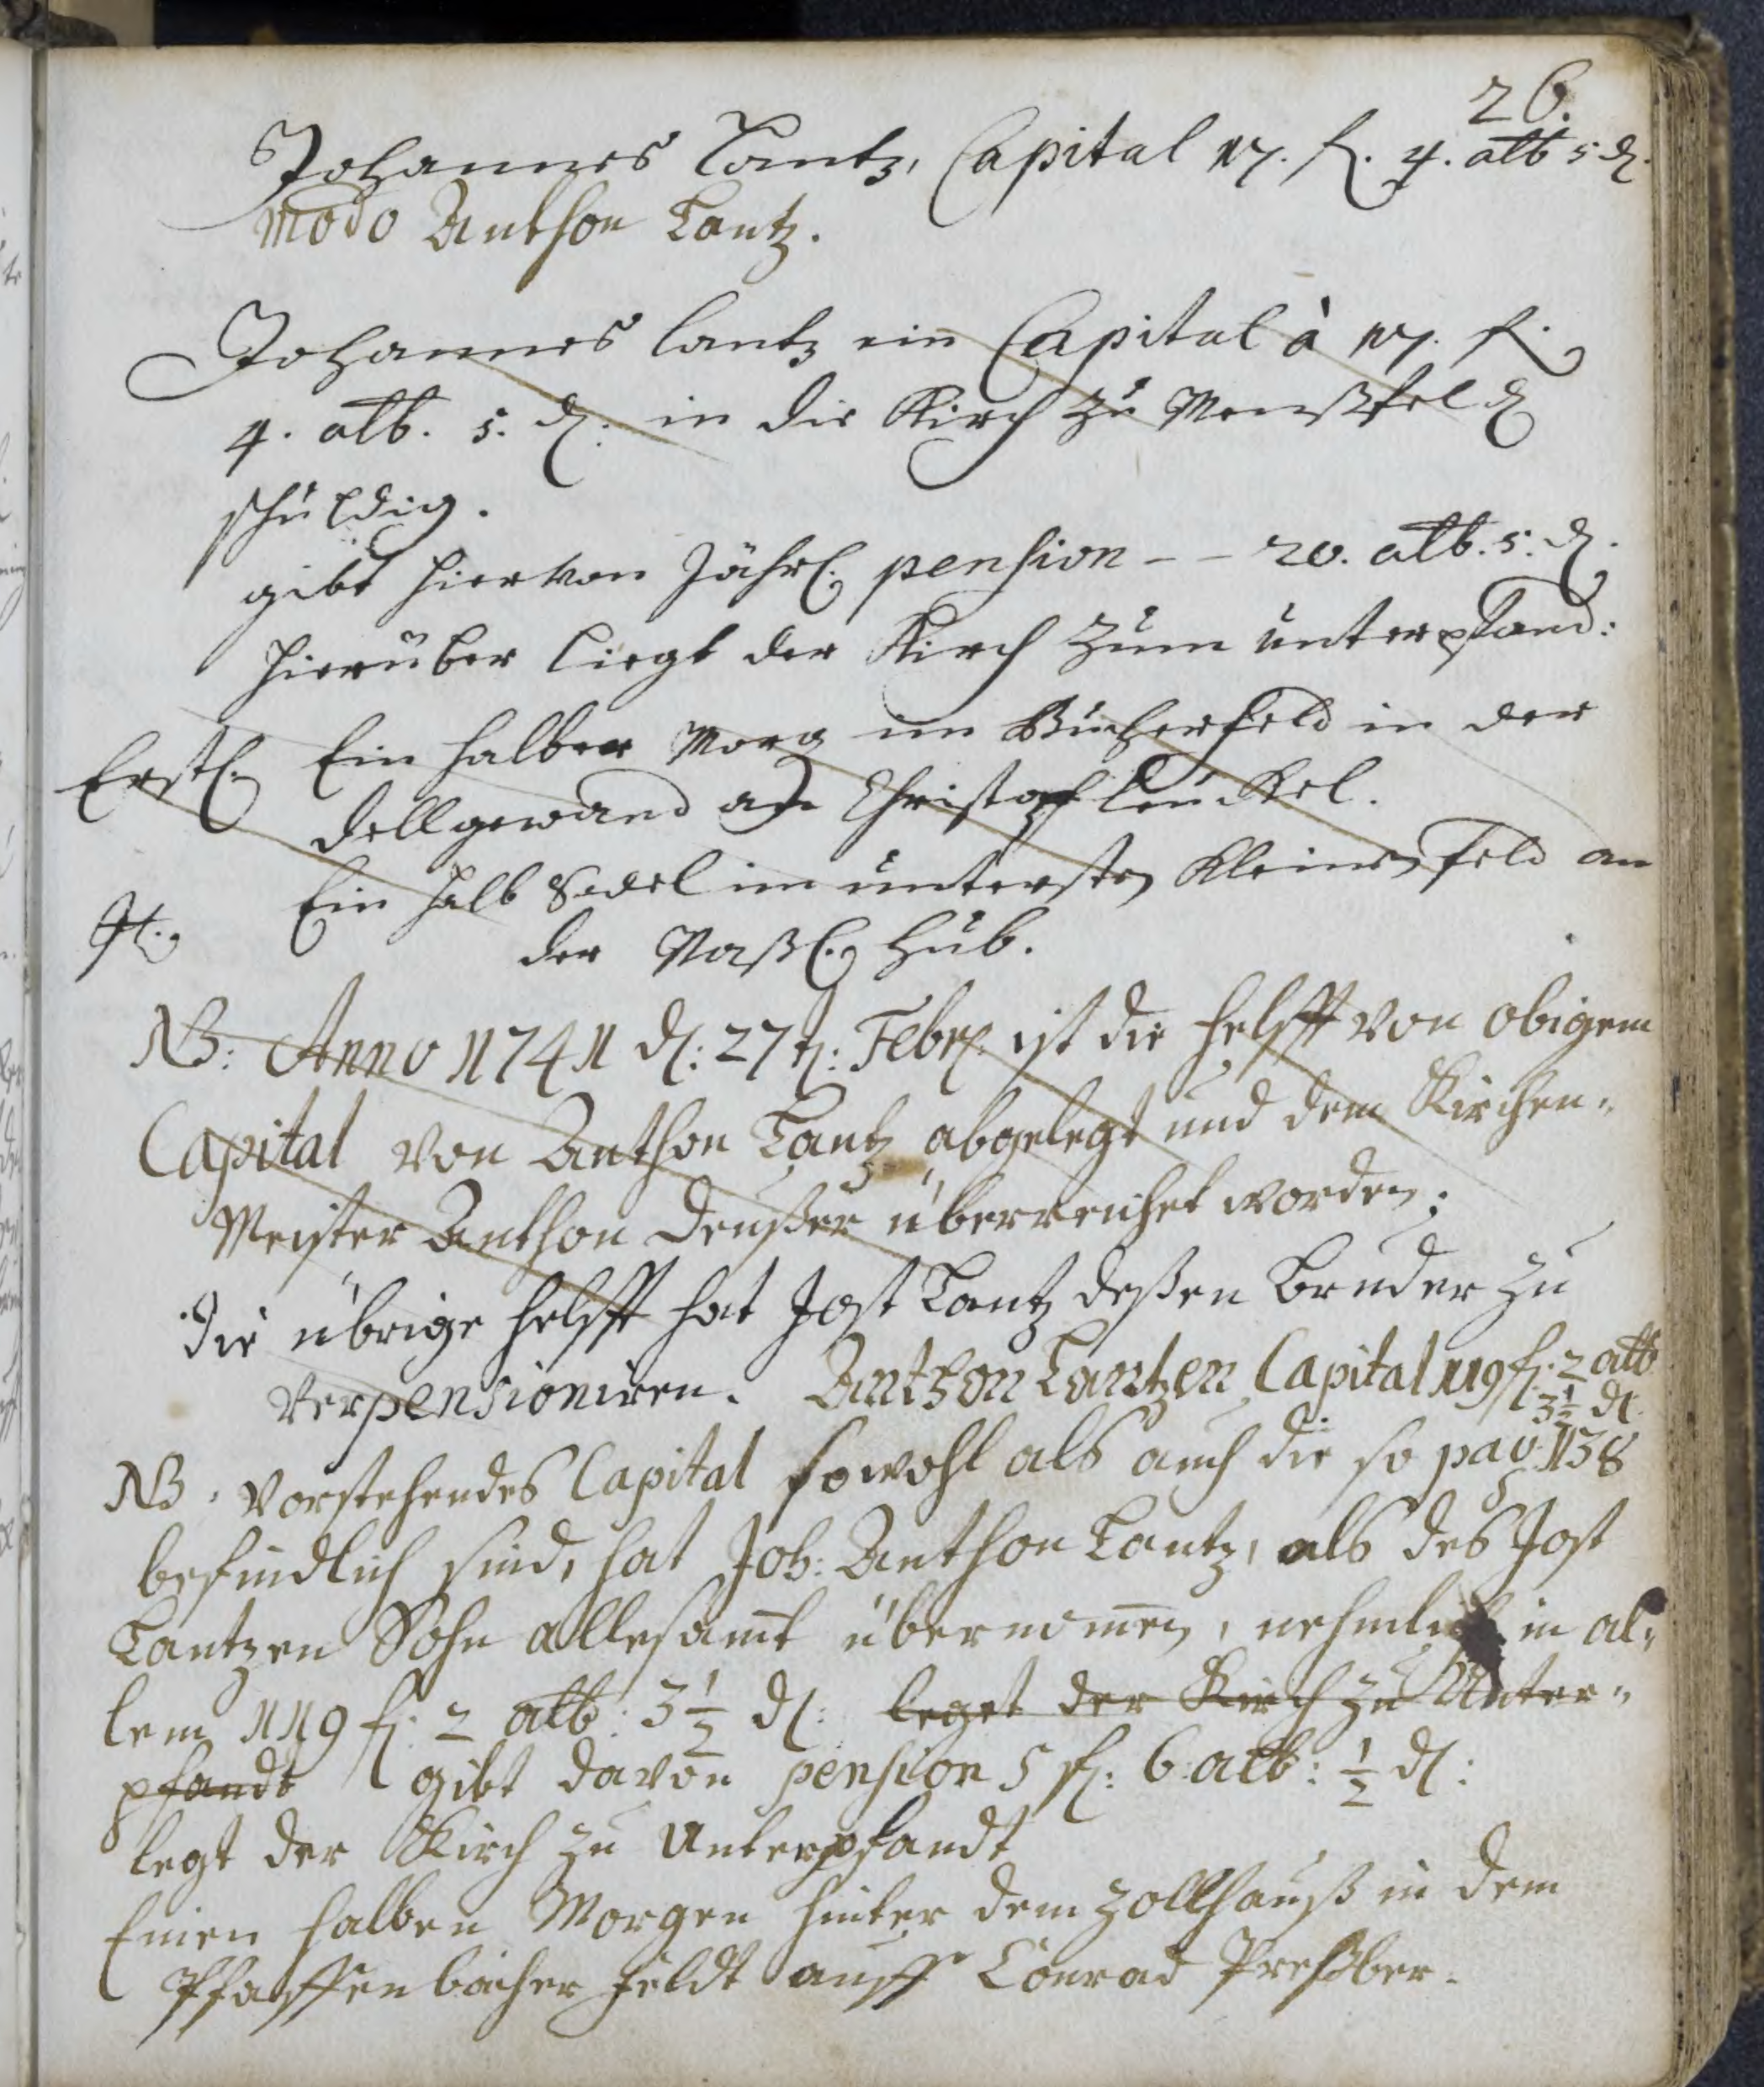 26.
Johannes Lantz, Capital 17. fl. 4. alb 5 d.
modo Anthon Lantz.
Johannes Lantz ein Capital à 17. fl.
4. alb. 5. d. in die Kirch zu Menßfeld
schuldig.
gibt hiervon Jährl. pension - - 20. alb. 5. d.
hierüber liegt der Kirch zum unterpfand:
Erstl. Ein halber Morg im Bücherfeld in der
Dellgewand an Christoph Leuckel.
It. Ein halb Sedel im untersten Kleinenfeld an
der Naßl. Hub.
NB: Anno 1741 d: 27t: Febr: ist die helfft von obigem
Capital von Anthon Lantz abgelegt und dem Kirchen-
Meister Anthon Deußer überreichet worden;
die übrige helfft hat Jost Lantz deßen Bruder zu
verpensioniren. Anthon Lantzen Capital 119 fl. 2 alb
3 1/2 d.
NB. Vorstehendes Capital sowohl als auch die so pag. 138
befindlich sind, hat Joh: Anthon Lantz, als des Jost
Lantzen Sohn allesamt übernommen, nehmlich in al-
lem 119 fl: 2 alb: 3 1/2 d: leget der Kirch zu Unter-
pfandt gibt davon pension 5 fl: 6 alb: 1/2 d:
legt der Kirch zu Unterpfandt
Einen halben Morgen hinter dem Zollhauß in dem
Pfaffenbächer feldt auff Conrad Preßber-